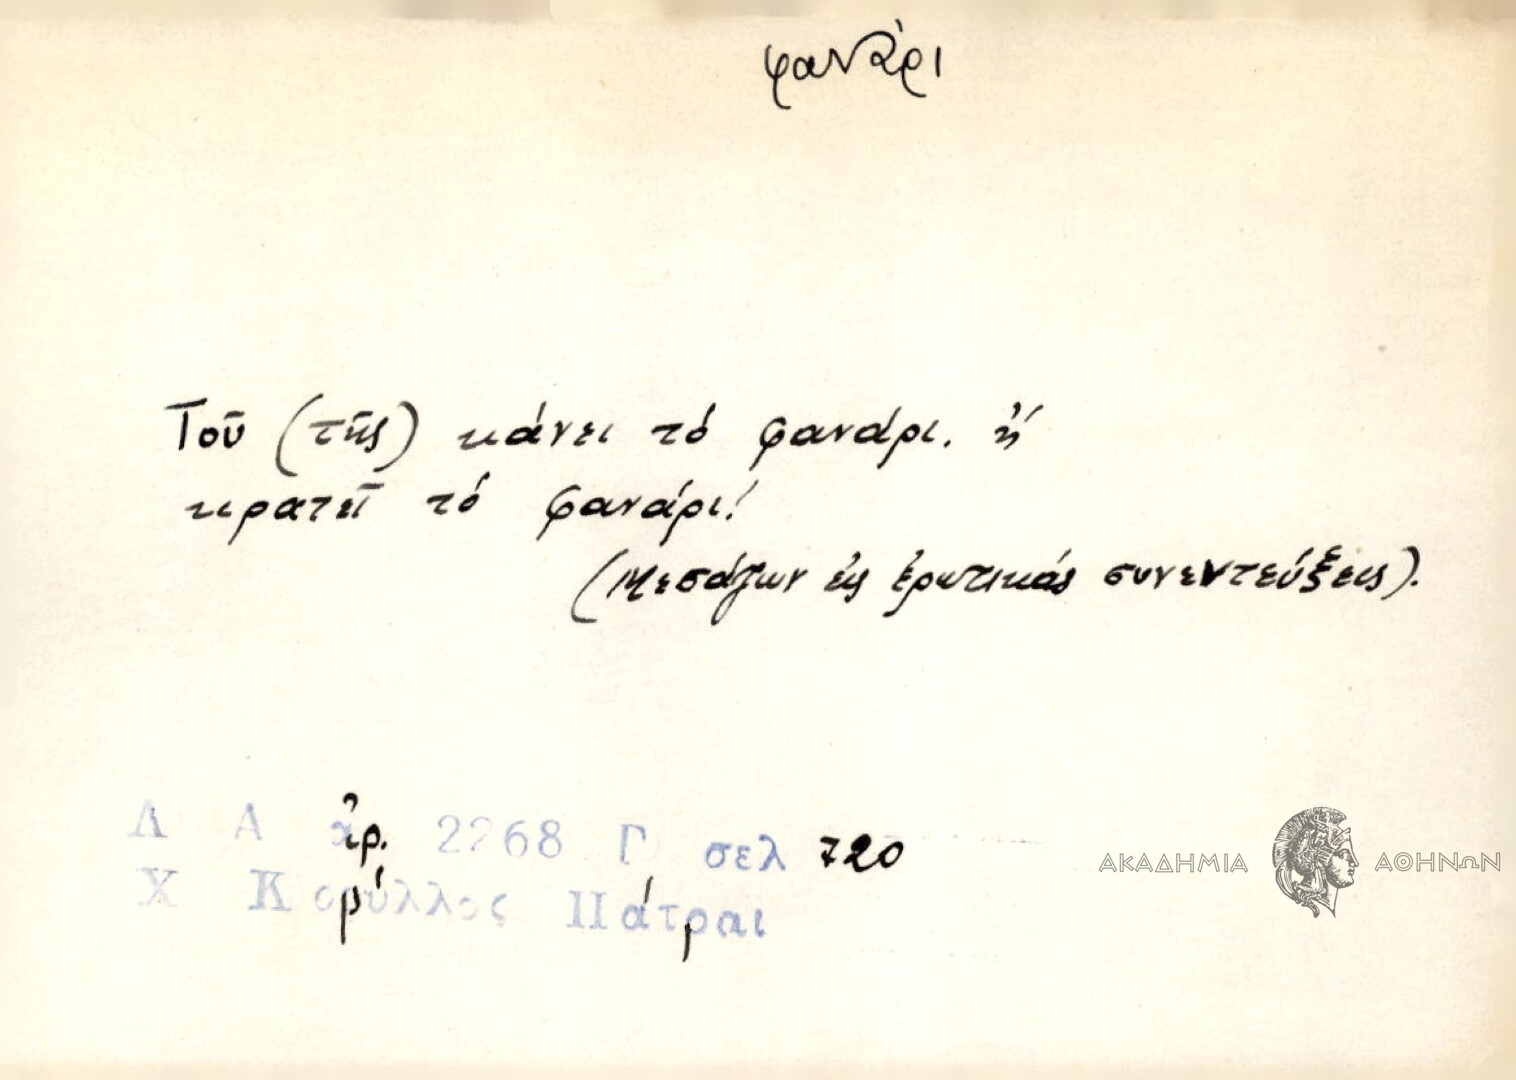 φανάρι
Τοῦ (τῆς) κάνει τό φανάρι. ἤ
κρατεῖ τό φανάρι!
(Μεσάζων εἰς ἐρωτικάς συνεντεύξεις).
Λ Α ἀρ. 2268 Γ σελ 720
Χ Κορύλλος Πάτραι
ΑΚΑΔΗΜΙΑ ΑΘΗΝΩΝ